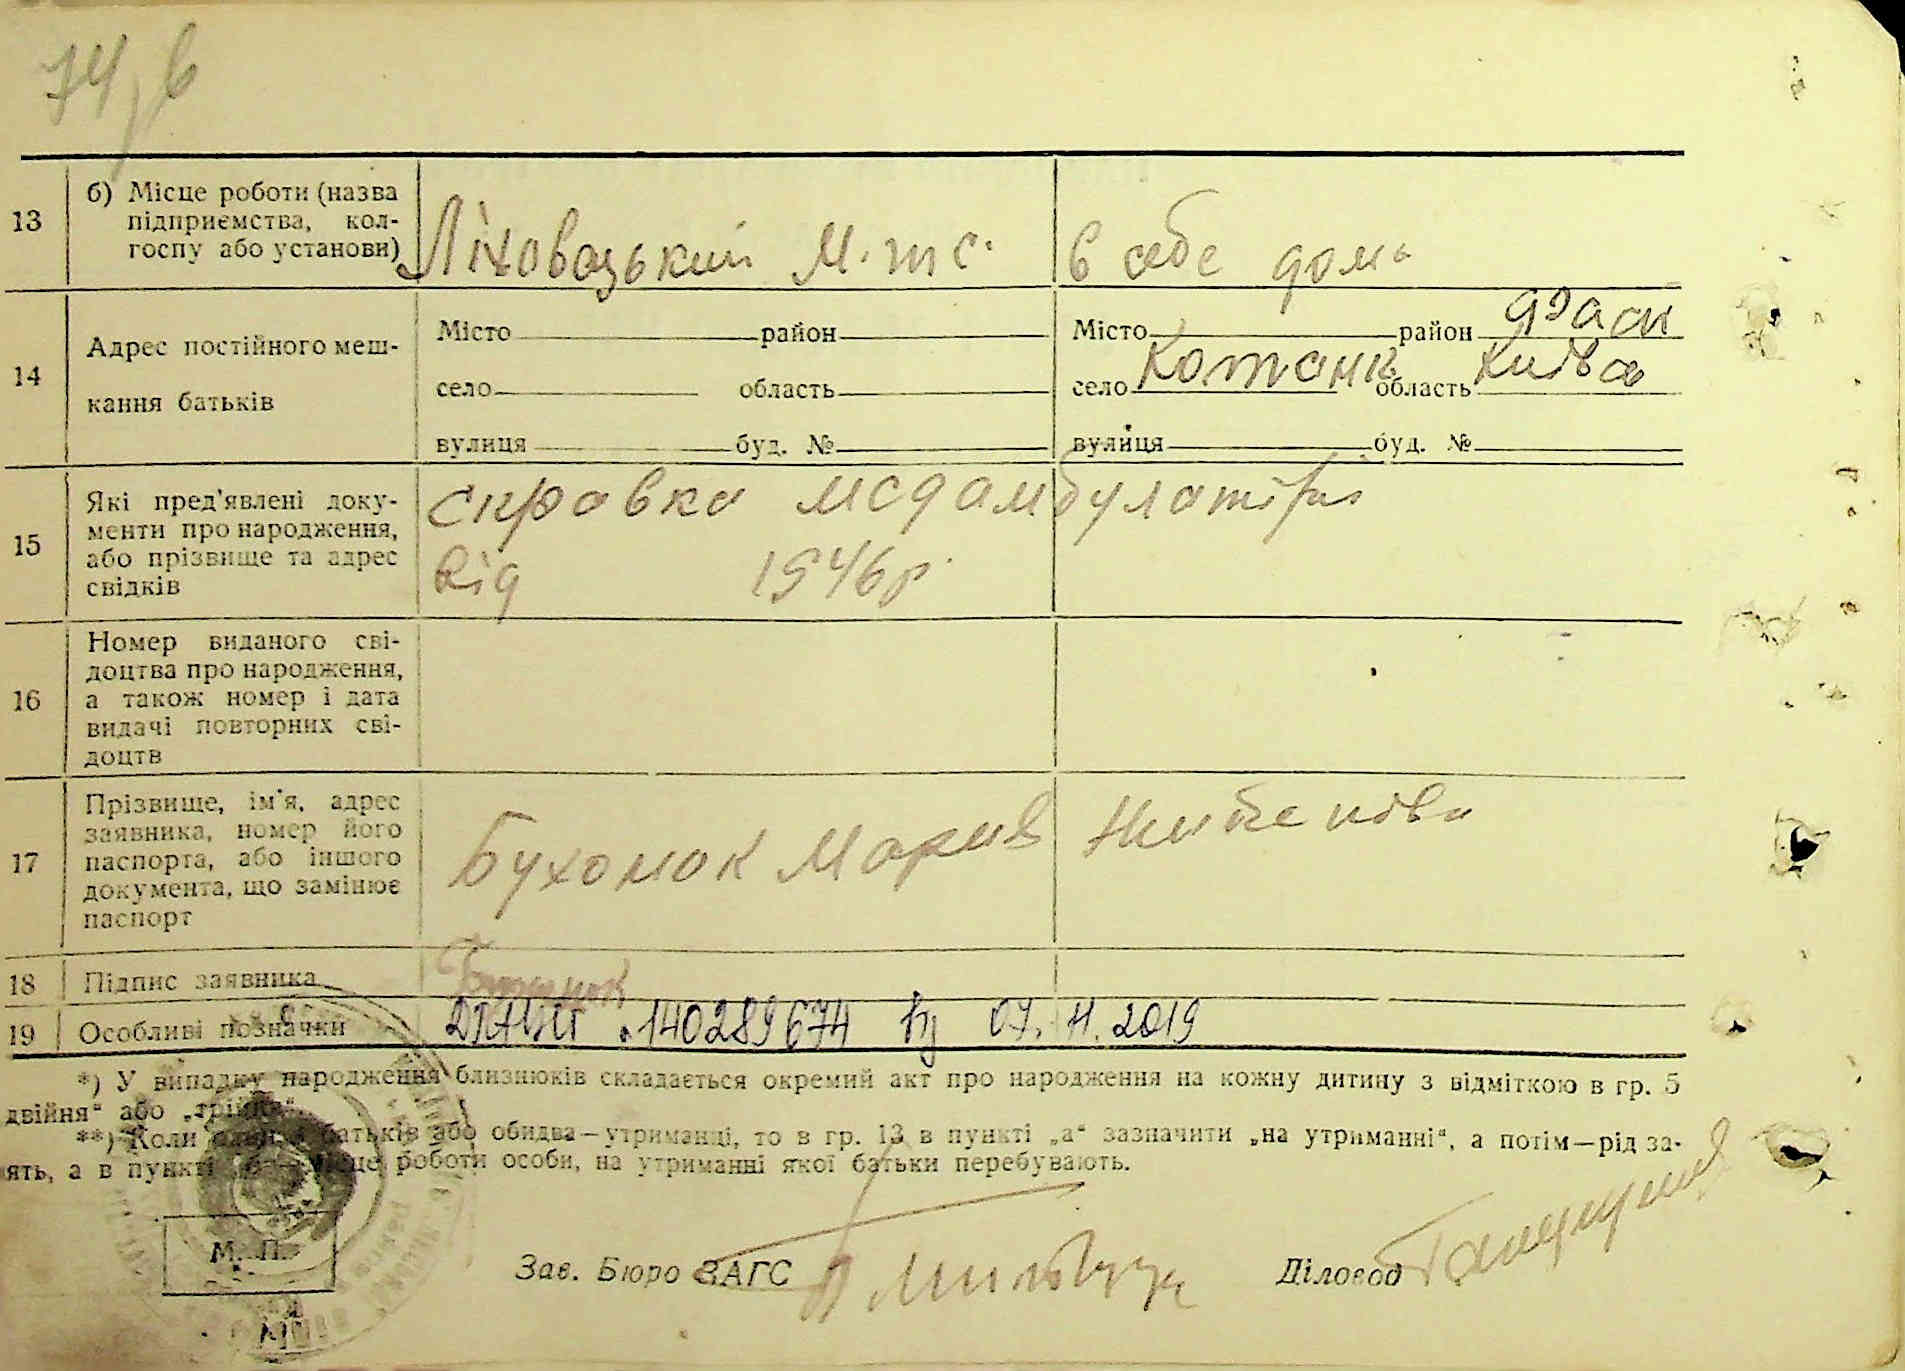 74, в
13 б) Місце роботи (назва
підприємства, кол-
госпу або установи)
Ліховацький М.т.с. в себе дома
14 Адрес постійного меш-
кання батьків
Місто район Місто район
село область село область Київсь
вулиця буд. № вулиця буд. №
15 Які пред'явлені доку-
менти про народження,
або прізвище та адрес
свідків
справка медамбулаторії
від 1946 р.
16 Номер виданого сві-
доцтва про народження,
а також номер і дата
видачі повторних сві-
доцтв
17 Прізвище, ім'я, адрес
заявника, номер його
паспорта, або іншого
документа, що замінює
паспорт
Бухонок Мария
18 Підпис заявника
19 Особливі позначки
140289674 від 07.11.2019
*) У випадку народження близнюків складається окремий акт про народження на кожну дитину з відміткою в гр. 5
двійня" або „трійня".
**) Коли один з батьків або обидва—утриманці, то в гр. 13 в пункті „а" зазначити „на утриманні", а потім—рід за-
ять, а в пункті місце роботи особи, на утриманні якої батьки перебувають.
М. П.
Зав. Бюро ЗАГС Діловод